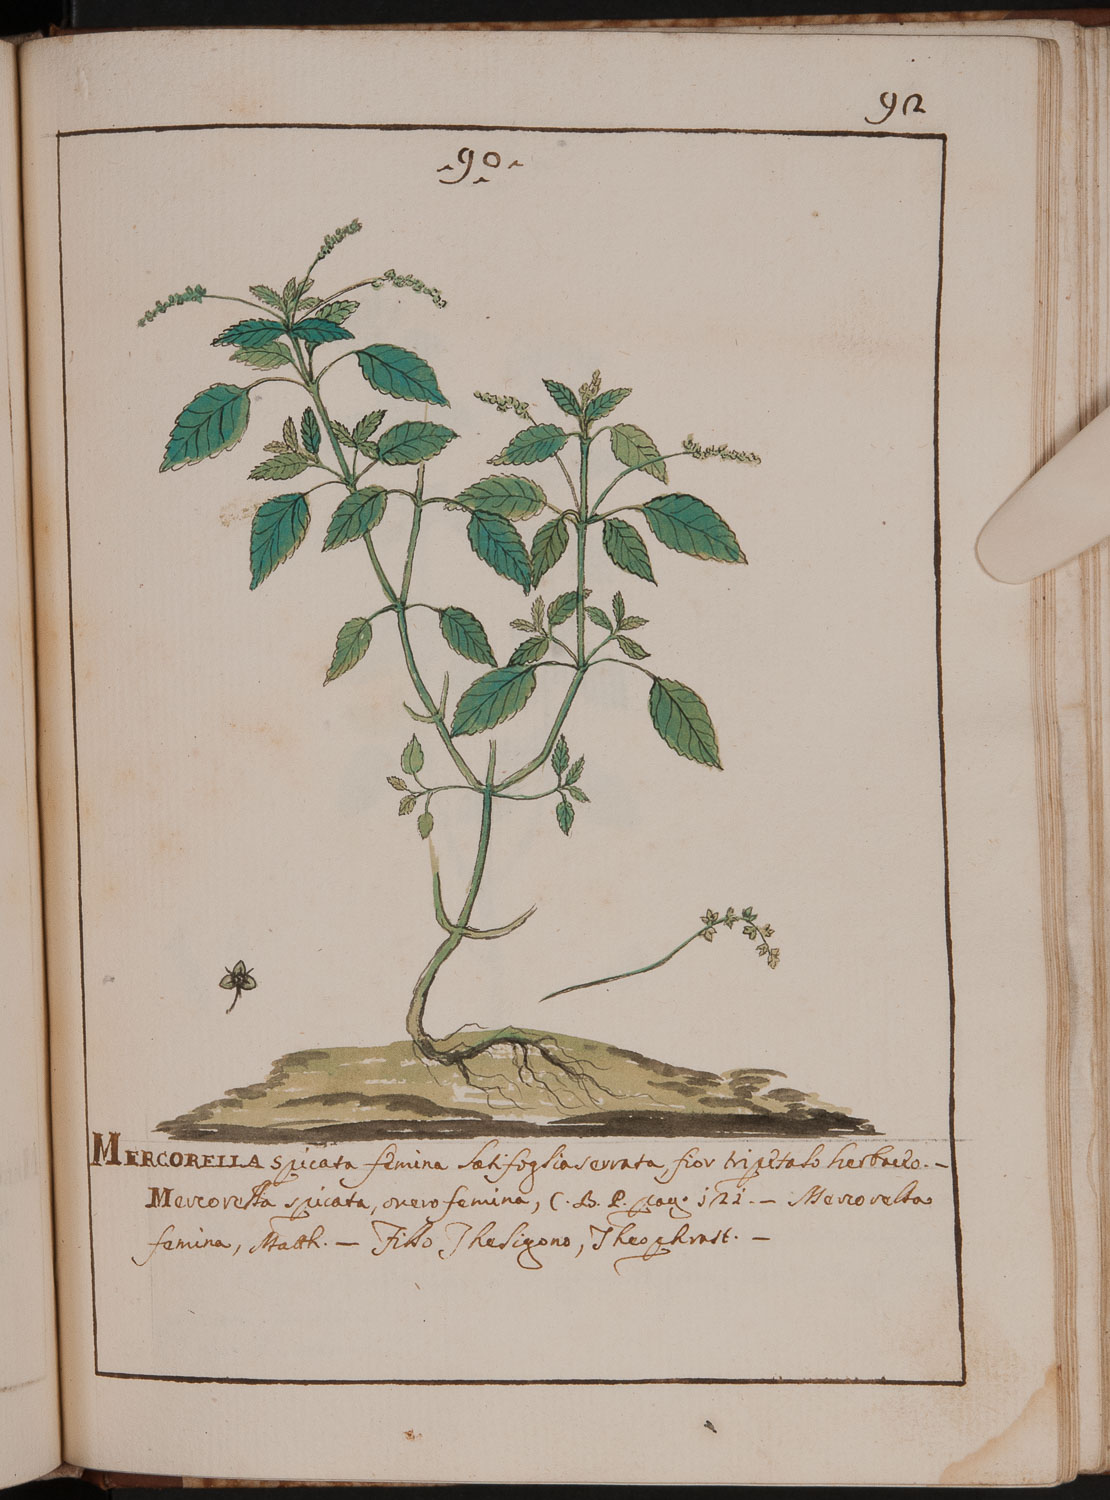 92
90.
MERCORELLA spicata femina latifoglia serrata, fior tripetalo herbaceo. -
Mercorella spicata, overo femina, C. B. P. pag. 121. - Mercorella
femina, Matth. - Fillo Theligono, Theophrast. -